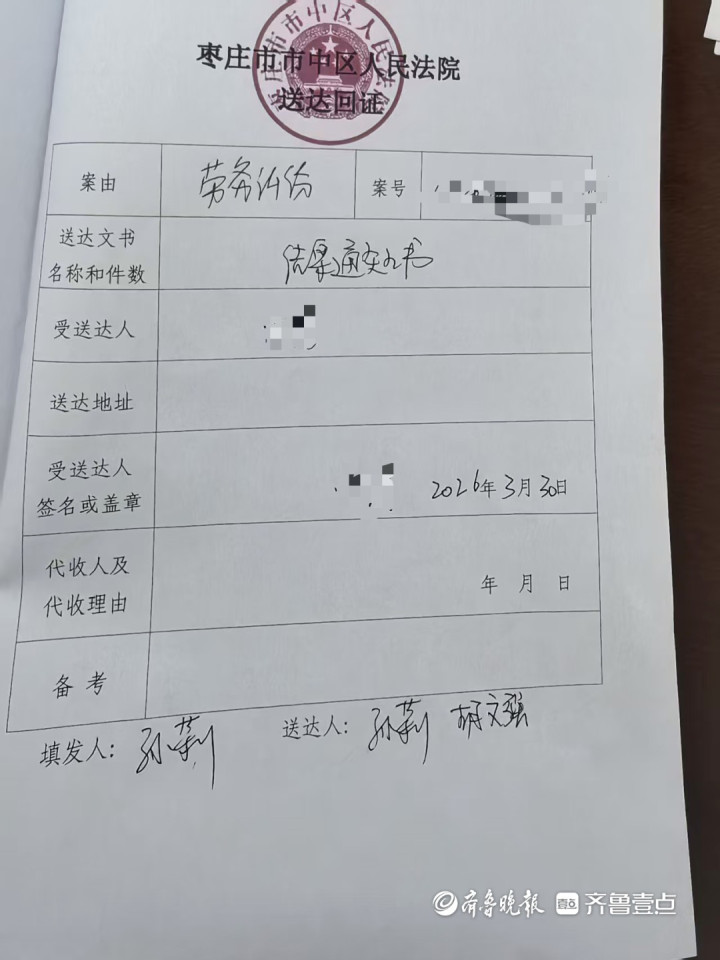 枣庄市市中区人民法院
送达回证
案由
劳务纠纷
案号
送达文书
名称和件数
结案通知书
受送达人
送达地址
受送达人
签名或盖章
2026年3月30日
代收人及
代收理由
年 月 日
备考
填发人：孙莉
送达人：孙莉 胡文强
齐鲁晚报 齐鲁壹点